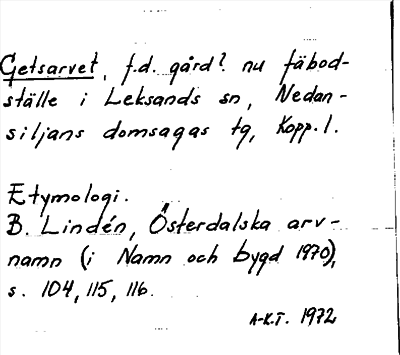 Getsarvet, f.d. gård? nu fäbod-
ställe i Leksands sn, Nedan-
siljans domsagas tg, Kopp. l.
Etymologi.
B. Lindén, Österdalska arv-
namn (i Namn och bygd 1970),
s. 104, 115, 116.
A-K.T. 1972